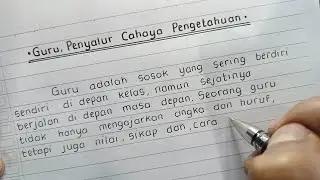 • Guru, Penyalur Cahaya Pengetahuan •
Guru adalah sosok yang sering berdiri
sendiri di depan kelas, namun sejatinya
berjalan di depan masa depan. Seorang guru
tidak hanya mengajarkan angka dan huruf,
tetapi juga nilai, sikap dan, cara